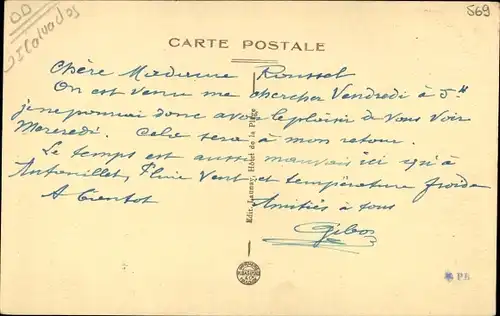 DD
Calvados
569
CARTE POSTALE
Chère Madame Roussel
On est venu me chercher Vendredi à 5H
je ne pourrai donc avoir le plaisir de Vous Voir
Mercredi. Cela sera à mon retour.
Le temps est aussi mauvais ici qu'à
Pluie Vent et température froide
A bientot Amitiés à tous
Edit. Launay, Hôtel de la Plage